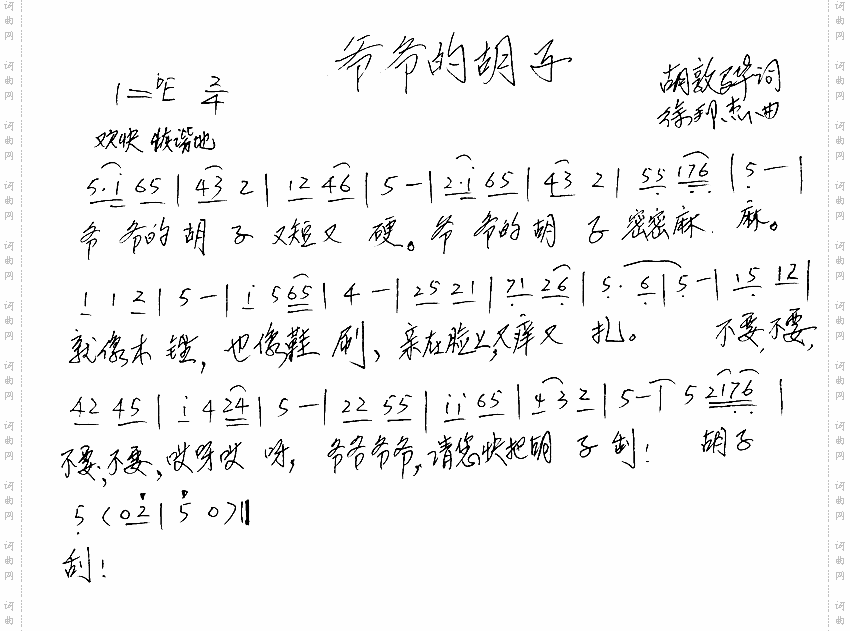 爷爷的胡子
1=♭E 2/4
胡敦骅词
徐邦杰曲
欢快 诙谐地
5·i 65 | 43 2 | 12 46 | 5 - | 2·i 65 | 43 2 | 55 176 | 5 - |
爷 爷的 胡 子 又短又 硬。爷 爷的 胡 子 密密麻 麻。
1 1 2 | 5 - | i 5 65 | 4 - | 25 21 | 71 26 | 5· 6 | 5 - | 15 12 |
就像木 锉,也像鞋 刷、亲在脸上,又痒又 扎。 不要,不要,
42 45 | i 4 24 | 5 - | 22 55 | ii 65 | 4 3 2 | 5 - | 5 2176 |
不要,不要,哎呀哎 呀,爷爷爷爷,请您快把胡 子 刮! 胡子
5 (02 | 5 0)‖
刮!
词曲网